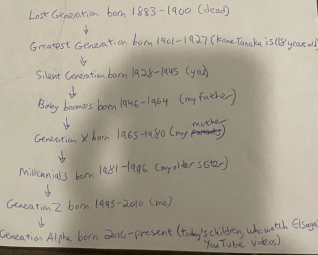 Lost Generation born 1883-1900 (dead)
Greatest Generation born 1901-1927 (Kane Tanaka is 118 years old)
Silent Generation born 1928-1945 (ya)
Baby boomers born 1946-1964 (my father)
Generation X born 1965-1980 (my mother)
Millennials born 1981-1996 (my older sister)
Generation Z born 1995-2010 (me)
Generation Alpha born 2010-present (today's children, who watch Elsagate
YouTube videos)